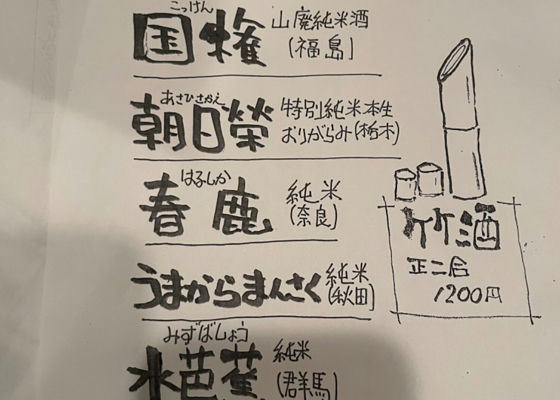 こっけん
国権 山廃純米酒
(福島)
あさひさかえ
朝日榮 特別純米本生
おりがらみ(栃木)
はるしか
春鹿 純米
(奈良)
うまからまんさく 純米
(秋田)
みずばしょう
水芭蕉 純米
(群馬)
竹酒
正二合
1200円